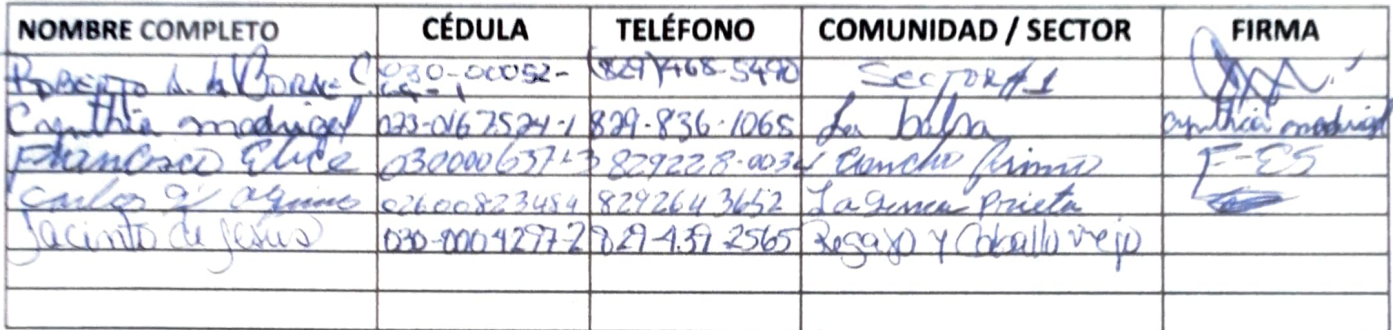 NOMBRE COMPLETO CÉDULA TELÉFONO COMUNIDAD / SECTOR FIRMA
Roberto A. 030-00052- (829)468-5490 Sector #1
Cynthia madrigal 023-0167524-1 829-836-1065 La balsa Cynthia madrigal
Francisco 829228-003 Concho Primo F-ES
Carlos 02600823484 8292643652 Laguna Prieta
Jacinto de Jesus 030-0004297-2 829-439-2565 Regajo y Caballo viejo